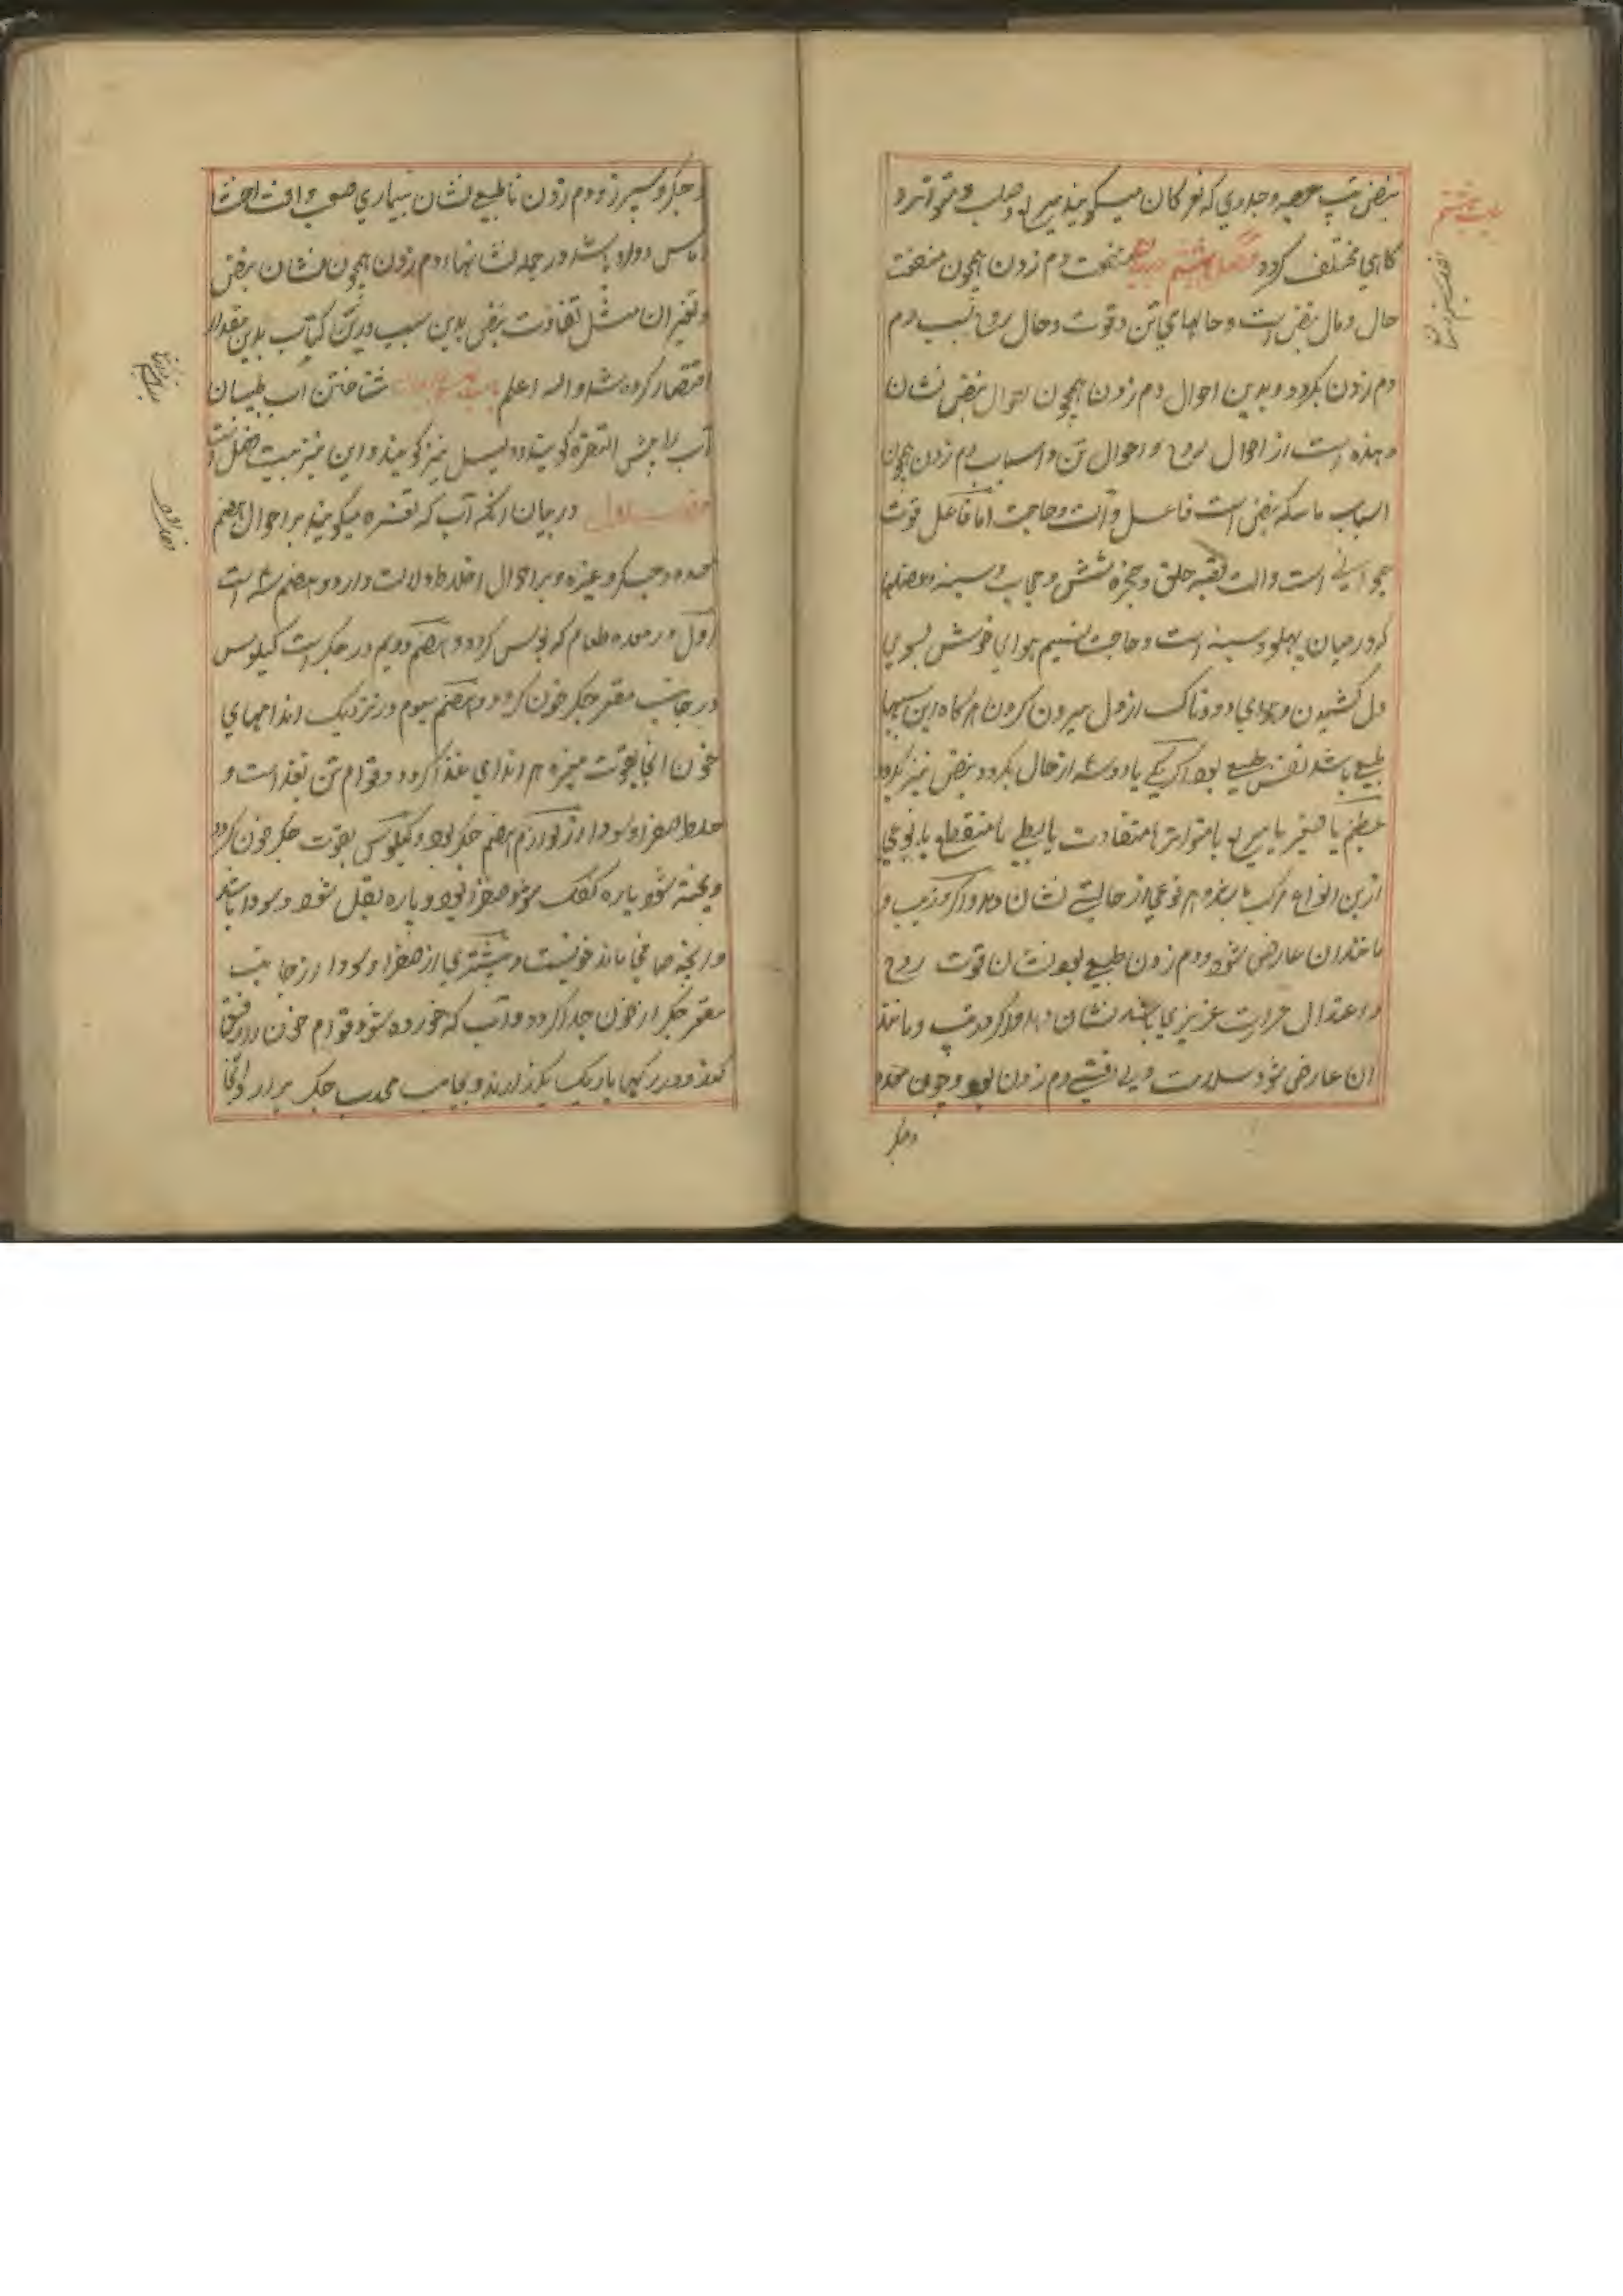 نبض تپ حصبه و جدری که نغز کان میگویند سریع و صلب و متواتر و
کاهی مختلف کردد فصل هشتم منفعت دم زدن همچون منفعت
حال و مال نبض است و حالهای تن و قوت و حال روح بسبب دم
دم زدن بکردد و بدین احوال دم زدن همچون احوال نبض نشان
دهنده است از احوال روح و احوال تن و اسباب دم زدن همچون
اسباب ماسکه نبض است فاعل و آلت و حاجت اما فاعل قوت
حیوانی است و الت قصبه حلق و حنجره شش و حجاب و سینه و عضلها
که در میان پهلو و سینه است و حاجت نسیم هوای خوش بسوی
دل کشیدن و هوای دودناک از دل بیرون کردن هرکاه این سببها
طبیعی باشد نفس طبیعی بود اکر یکی یا دو سه از حال بکردد نبض نیز بکردد
عظیم یا صغیر یا سریع یا متواتر یا متفاوت یا بطی یا منقطع یا نوعی
ازین انواع مرکب باشد و هر نوعی از حالتی نشان دهد و اکر تب و
مانند ان عارض شود و دم زدن طبیعی بود نشان قوت روح
و اعتدال حرارت غریزی باشد نشان دهد و اکر تب و مانند
ان عارض شود سلامت و بی افتی دم زدن بود و چون معده
و جکر
و جکر و سپرز و دم زدن نا طبیعی نشان بیماری صعب و افت احشا
اماس دارد باشد و در جمله نشانهاء دم زدن همچون نشان نبض
و تغیر ان مثل تفاوت نبض بدین سبب درین کتاب بدین مقدار
اقتصار کرده شد و الله اعلم شناختن آب طبیبان
آب را التفسره کویند و دلیل نیز کویند و این نیز بیست فصل است
فصل اول در بیان انکه آب که تفسره میکویند بر احوال هضم
معده و جکر و غیره و بر احوال اخلاط دلالت دارد و هضم سه است
اول در معده طعام کیلوس کردد و هضم دویم در جکر است کیلوس
در جانب مقعر جکر خون کردد و هضم سیوم در نزدیک اندامهای
خون انجا بقوت مغیره هر اندامی غذا کردد و قوام تن بغذا است و
خلط صفرا و سودا از لوازم هضم جکر بود و کیلوس بقوت جکر خون کردد
و پخته شود پاره کفک صفرا بود و پاره ثقل شود و سودا باشد
و انچه صافی ماند خونست و بیشتری از صفرا و سودا از جانب
مقعر جکر از خون جدا کردد و آب که خورده شود قوام خون را رقیق
کند و در رکها باریک بکذراند و بجانب محدب جکر برارد و انجا